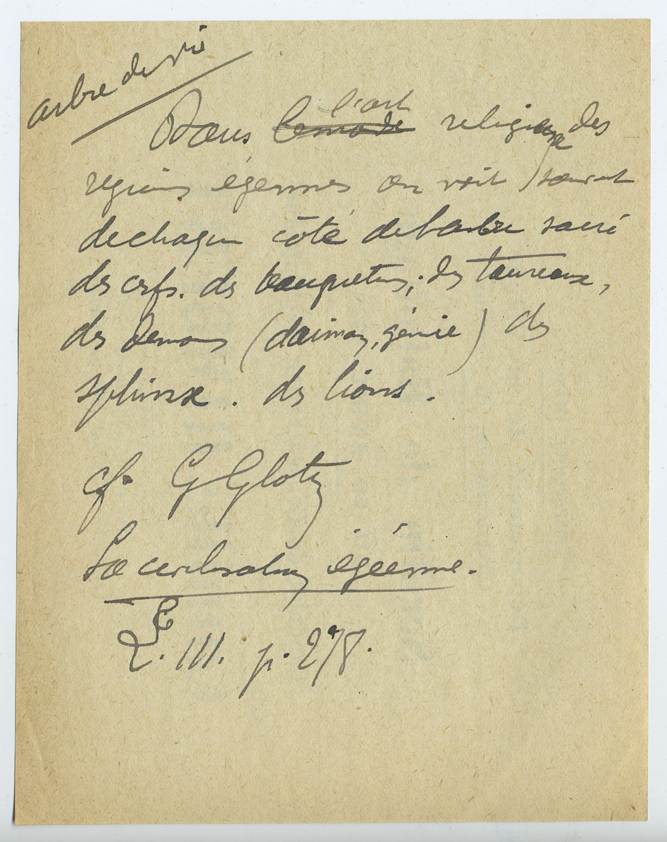 arbre de vie
l'art
Dans le monde religieux des
régions égéennes on voit souvent
de chaque côté de l'arbre sacré
des cerfs. des bouquetins, des taureaux,
des démons (daimon, génie) des
sphinx. des lions.
cf. G Glotz
La civilisation égéenne.
L. III. p. 278.